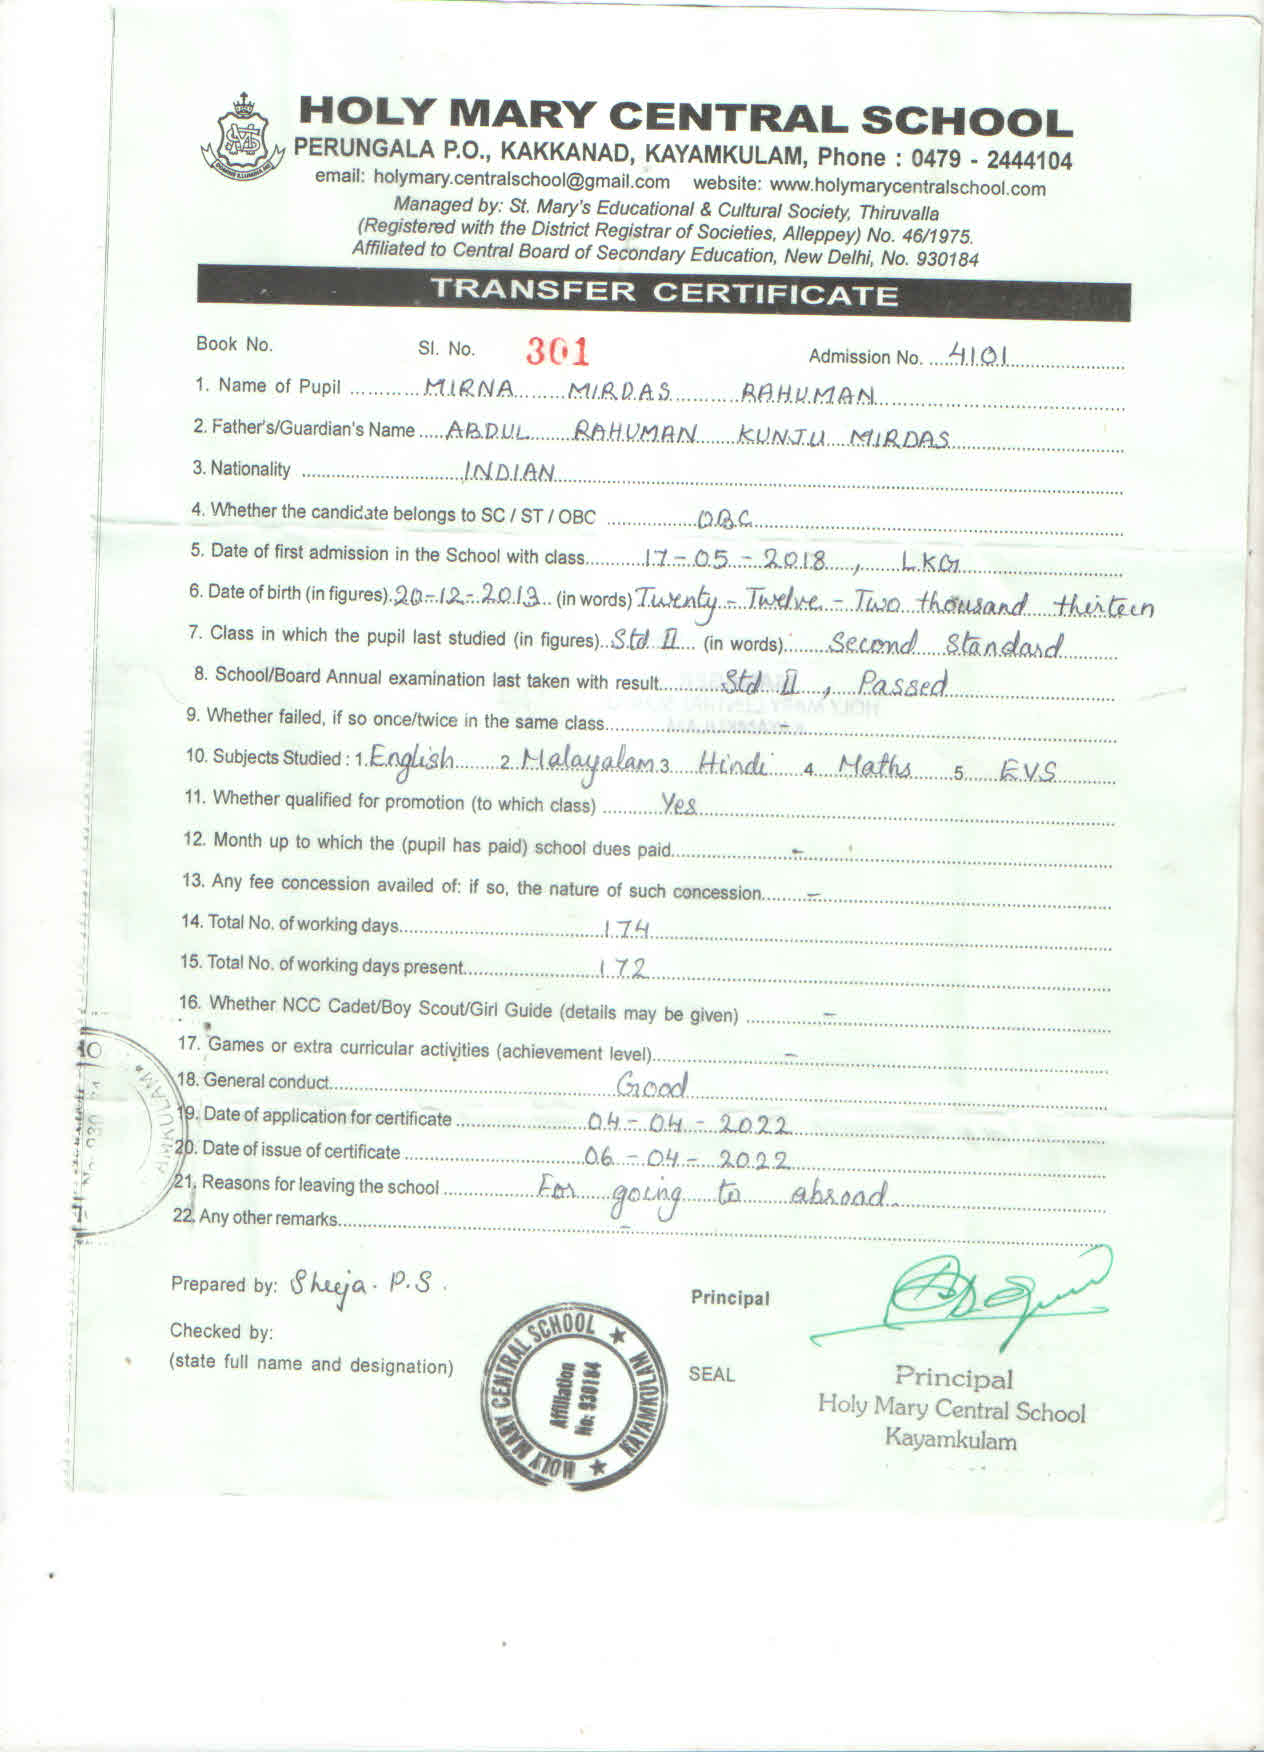 HOLY MARY CENTRAL SCHOOL
PERUNGALA P.O., KAKKANAD, KAYAMKULAM, Phone : 0479 - 2444104
email: holymary.centralschool@gmail.com website: www.holymarycentralschool.com
Managed by: St. Mary's Educational & Cultural Society, Thiruvalla
(Registered with the District Registrar of Societies, Alleppey) No. 46/1975.
Affiliated to Central Board of Secondary Education, New Delhi, No. 930184
TRANSFER CERTIFICATE
Book No. Sl. No. 301 Admission No. ....4101
1. Name of Pupil ............MIRNA MIRDAS RAHUMAN
2. Father's/Guardian's Name ....ABDUL RAHUMAN KUNJU MIRDAS
3. Nationality ............INDIAN
4. Whether the candidate belongs to SC / ST / OBC ............OBC
5. Date of first admission in the School with class............17-05-2018, LKG
6. Date of birth (in figures).20-12-2013.. (in words) Twenty - Twelve - Two thousand thirteen
7. Class in which the pupil last studied (in figures)..Std II... (in words)........Second Standard
8. School/Board Annual examination last taken with result............Std II, Passed
9. Whether failed, if so once/twice in the same class............-
10. Subjects Studied : 1.English 2. Malayalam 3. Hindi 4. Maths 5. E.V.S
11. Whether qualified for promotion (to which class) ..........Yes
12. Month up to which the (pupil has paid) school dues paid............-
13. Any fee concession availed of: if so, the nature of such concession........-
14. Total No. of working days............174
15. Total No. of working days present............172
16. Whether NCC Cadet/Boy Scout/Girl Guide (details may be given) ............-
17. Games or extra curricular activities (achievement level)............-
18. General conduct............Good
19. Date of application for certificate ............04-04-2022
20. Date of issue of certificate ............06-04-2022
21. Reasons for leaving the school ............For going to abroad.
22. Any other remarks............-
Prepared by: Sheeja. P.S.
Principal
Checked by:
(state full name and designation)
SEAL
HOLY MARY CENTRAL SCHOOL ★ KAYAMKULAM ★
Affiliation
No: 930184
Principal
Holy Mary Central School
Kayamkulam